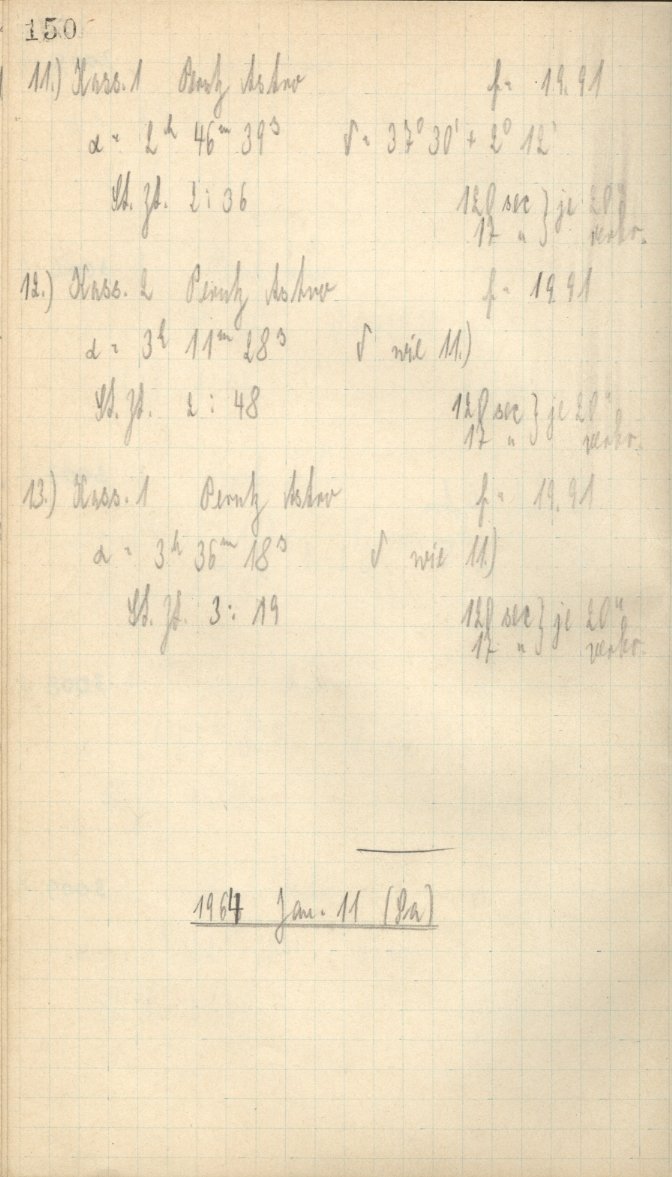 150
11.) Kass. 1 Perutz Astro f = 19.91
α = 2h 46m 39s δ = 37° 30' + 2° 12'
St. Zt. 2:36 120 sec } je 20"
17 " } verbr.
12.) Kass. 2 Perutz Astro f = 19.91
α = 3h 11m 28s δ wie 11.)
St. Zt. 2:48 120 sec } je 20"
17 " } verbr.
13.) Kass. 1 Perutz Astro f = 19.91
α = 3h 36m 18s δ wie 11.)
St. Zt. 3:19 120 sec } je 20"
17 " } verbr.
1964 Jan. 11 (Sa)